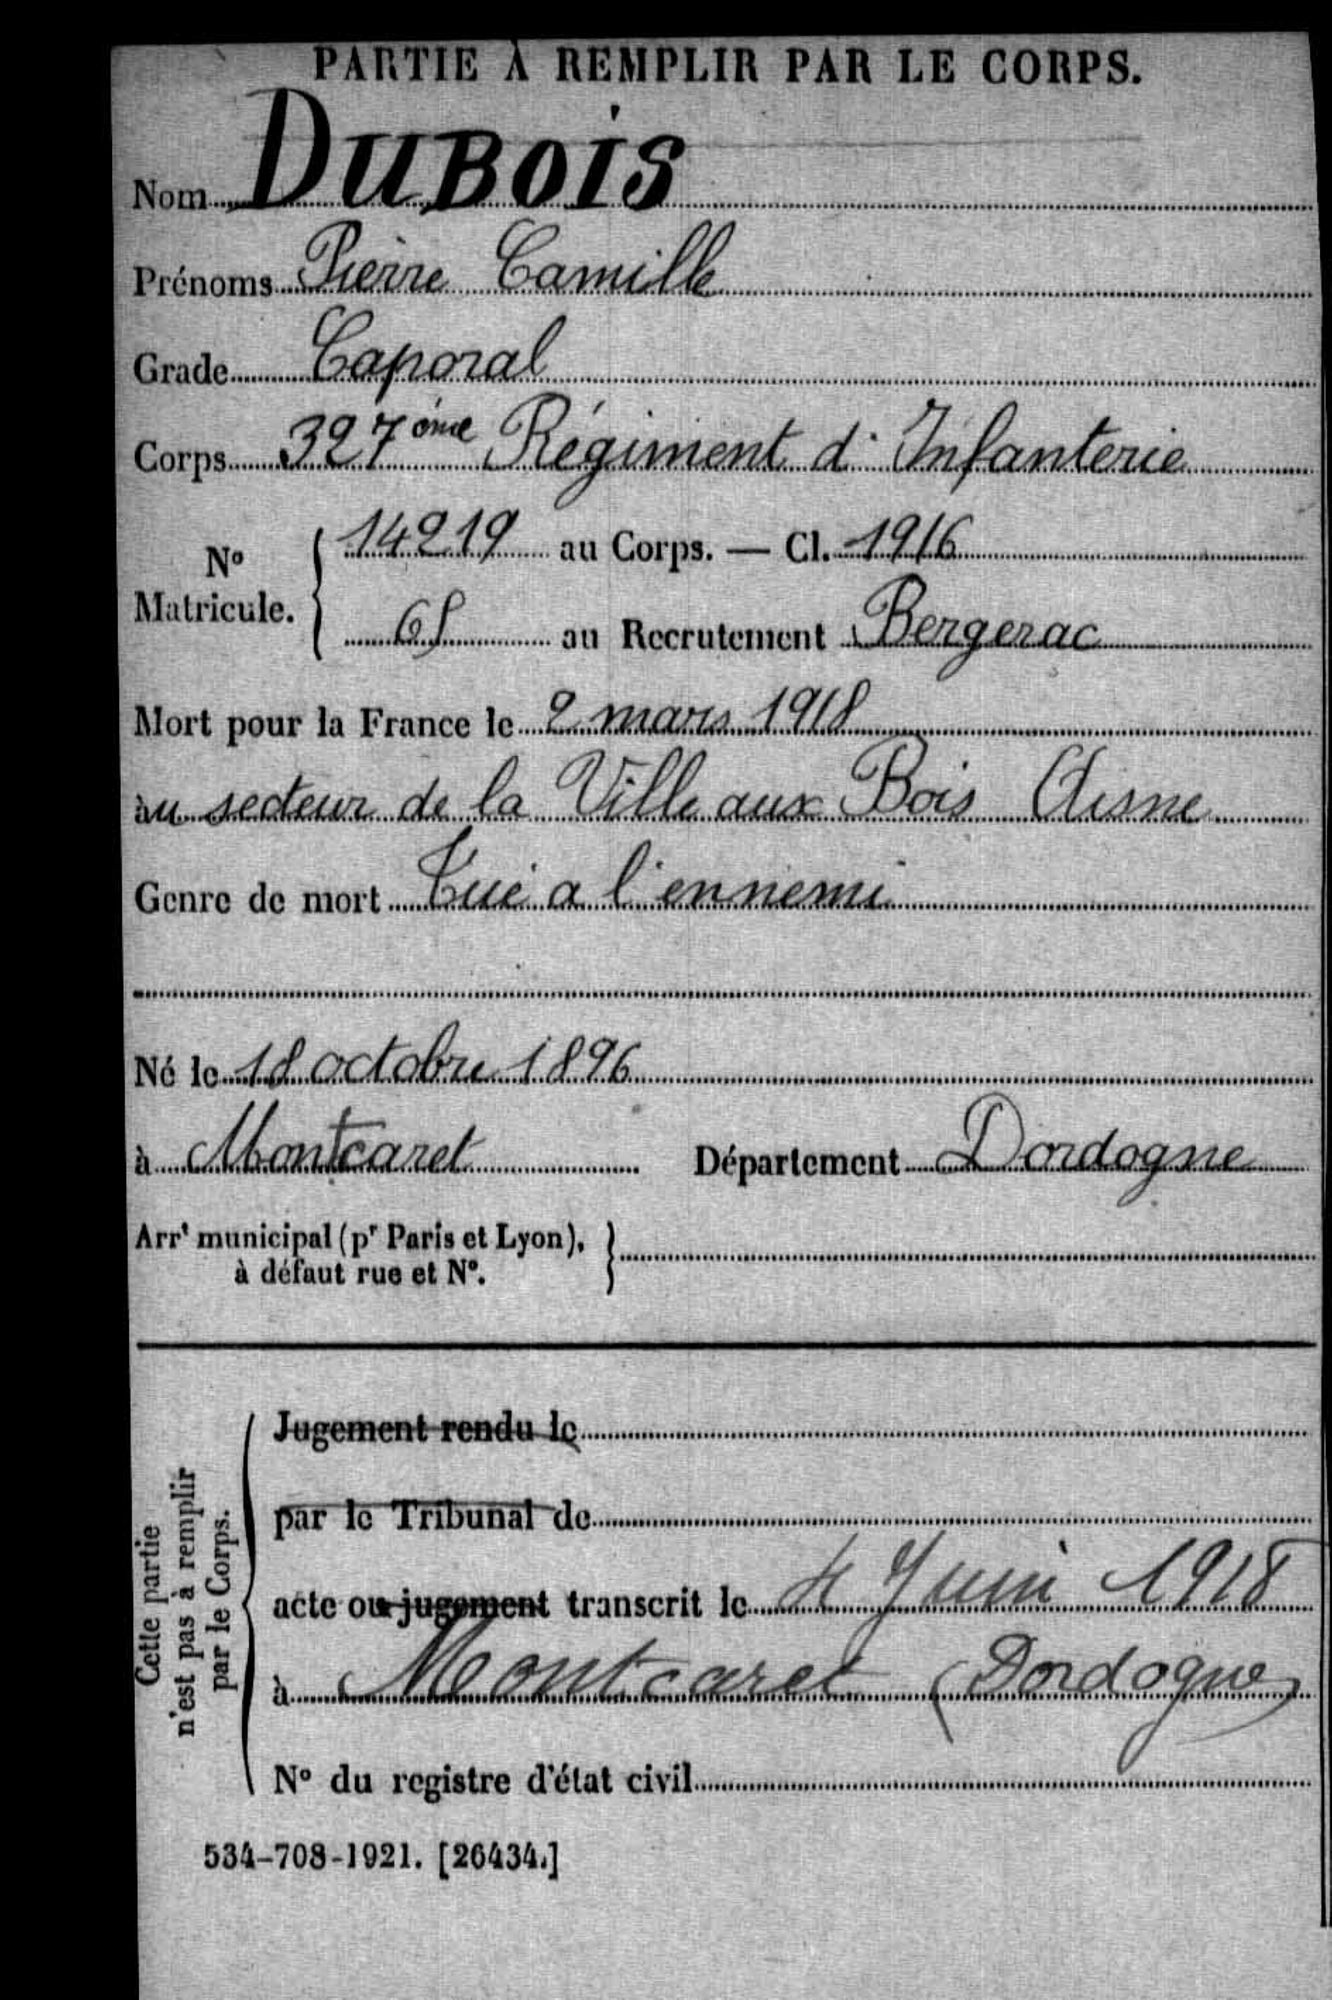 PARTIE À REMPLIR PAR LE CORPS.
Nom DUBOIS
Prénoms Pierre Camille
Grade Caporal
Corps 327ème Régiment d'Infanterie
N° Matricule. { 14219 au Corps. — Cl. 1916
68 au Recrutement Bergerac
Mort pour la France le 2 mars 1918
au secteur de la Ville aux Bois Aisne
Genre de mort Tué a l'ennemi
Né le 18 octobre 1896
à Montcaret Département Dordogne
Arrt municipal (pr Paris et Lyon), }
à défaut rue et N°.
Cette partie
n'est pas à remplir
par le Corps.
Jugement rendu le
par le Tribunal de
acte ou jugement transcrit le 4 Juin 1918
à Montcaret (Dordogne)
N° du registre d'état civil
534-708-1921. [26434.]